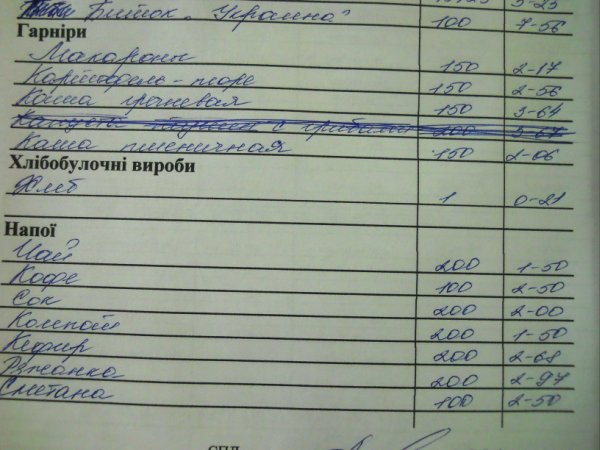 Биток „Украина" 100 7-56
Гарніри
Макароны 150 2-17
Картофель-пюре 150 2-56
Каша гречневая 150 3-64
Капуста тушеная с грибами 200 3-67
Каша пшеничная 150 2-06
Хлібобулочні вироби
Хліб 1 0-21
Напої
Чай 200 1-50
Кофе 100 2-50
Сок 200 2-00
Компот 200 1-50
Кефир 200 2-68
Ряжанка 200 2-97
Сметана 100 2-50